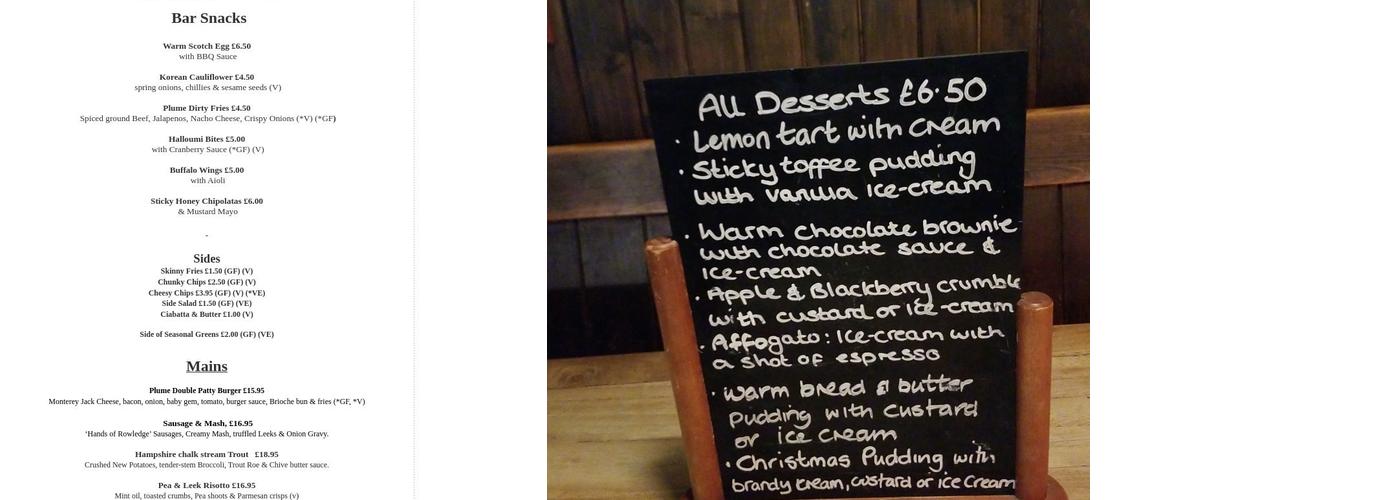 Bar Snacks
Warm Scotch Egg £6.50
with BBQ Sauce
Korean Cauliflower £4.50
spring onions, chillies & sesame seeds (V)
Plume Dirty Fries £4.50
Spiced ground Beef, Jalapenos, Nacho Cheese, Crispy Onions (*V) (*GF)
Halloumi Bites £5.00
with Cranberry Sauce (*GF) (V)
Buffalo Wings £5.00
with Aioli
Sticky Honey Chipolatas £6.00
& Mustard Mayo
-
Sides
Skinny Fries £1.50 (GF) (V)
Chunky Chips £2.50 (GF) (V)
Cheesy Chips £3.95 (GF) (V) (*VE)
Side Salad £1.50 (GF) (VE)
Ciabatta & Butter £1.00 (V)
Side of Seasonal Greens £2.00 (GF) (VE)
Mains
Plume Double Patty Burger £15.95
Monterey Jack Cheese, bacon, onion, baby gem, tomato, burger sauce, Brioche bun & fries (*GF, *V)
Sausage & Mash, £16.95
‘Hands of Rowledge’ Sausages, Creamy Mash, truffled Leeks & Onion Gravy.
Hampshire chalk stream Trout £18.95
Crushed New Potatoes, tender-stem Broccoli, Trout Roe & Chive butter sauce.
Pea & Leek Risotto £16.95
Mint oil, toasted crumbs, Pea shoots & Parmesan crisps (v)
All Desserts £6.50
· Lemon tart with cream
· Sticky toffee pudding
with vanilla Ice-cream
· Warm chocolate brownie
with chocolate sauce &
Ice-cream
· Apple & Blackberry crumble
with custard or ice-cream
· Affogato: Ice-cream with
a shot of espresso
· warm bread & butter
pudding with custard
or ice cream
· Christmas Pudding with
brandy cream, custard or ice cream